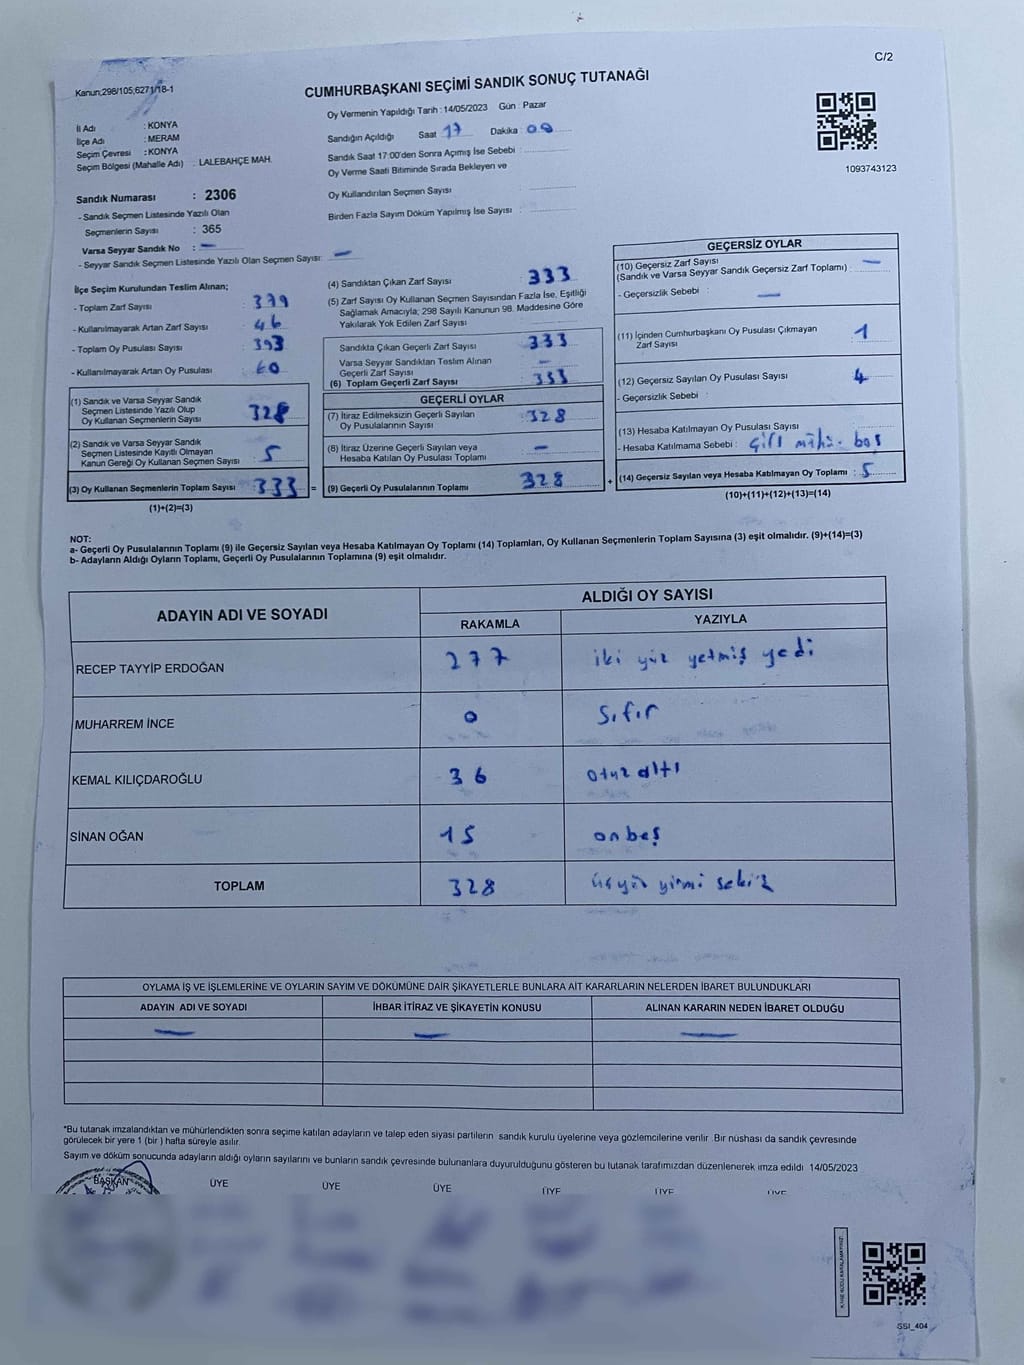 C/2
Kanun;298/105;6271/18-1
CUMHURBAŞKANI SEÇİMİ SANDIK SONUÇ TUTANAĞI
1093743123
İl Adı : KONYA
İlçe Adı : MERAM
Seçim Çevresi : KONYA
Seçim Bölgesi (Mahalle Adı) : LALEBAHÇE MAH.
Sandık Numarası : 2306
- Sandık Seçmen Listesinde Yazılı Olan
Seçmenlerin Sayısı : 365
Varsa Seyyar Sandık No : —
- Seyyar Sandık Seçmen Listesinde Yazılı Olan Seçmen Sayısı: —
Oy Vermenin Yapıldığı Tarih : 14/05/2023 Gün : Pazar
Sandığın Açıldığı Saat 17 Dakika : 00
Sandık Saat 17:00'den Sonra Açımış İse Sebebi :
Oy Verme Saati Bitiminde Sırada Bekleyen ve
Oy Kullandırılan Seçmen Sayısı :
Birden Fazla Sayım Döküm Yapılmış İse Sayısı :
İlçe Seçim Kurulundan Teslim Alınan;
- Toplam Zarf Sayısı : 379
- Kullanılmayarak Artan Zarf Sayısı : 46
- Toplam Oy Pusulası Sayısı : 393
- Kullanılmayarak Artan Oy Pusulası : 60
(1) Sandık ve Varsa Seyyar Sandık
Seçmen Listesinde Yazılı Olup
Oy Kullanan Seçmenlerin Sayısı : 328
(2) Sandık ve Varsa Seyyar Sandık
Seçmen Listesinde Kayıtlı Olmayan
Kanun Gereği Oy Kullanan Seçmen Sayısı : 5
(3) Oy Kullanan Seçmenlerin Toplam Sayısı : 333 =
(1)+(2)=(3)
(4) Sandıktan Çıkan Zarf Sayısı : 333
(5) Zarf Sayısı Oy Kullanan Seçmen Sayısından Fazla İse, Eşitliği
Sağlamak Amacıyla; 298 Sayılı Kanunun 98. Maddesine Göre
Yakılarak Yok Edilen Zarf Sayısı :
Sandıkta Çıkan Geçerli Zarf Sayısı : 333
Varsa Seyyar Sandıktan Teslim Alınan
Geçerli Zarf Sayısı : —
(6) Toplam Geçerli Zarf Sayısı : 333
GEÇERLİ OYLAR
(7) İtiraz Edilmeksizin Geçerli Sayılan
Oy Pusulalarının Sayısı : 328
(8) İtiraz Üzerine Geçerli Sayılan veya
Hesaba Katılan Oy Pusulası Toplamı : —
(9) Geçerli Oy Pusulalarının Toplamı : 328 +
GEÇERSİZ OYLAR
(10) Geçersiz Zarf Sayısı
(Sandık ve Varsa Seyyar Sandık Geçersiz Zarf Toplamı) : —
- Geçersizlik Sebebi : —
(11) İçinden Cumhurbaşkanı Oy Pusulası Çıkmayan
Zarf Sayısı : 1
(12) Geçersiz Sayılan Oy Pusulası Sayısı : 4
- Geçersizlik Sebebi :
(13) Hesaba Katılmayan Oy Pusulası Sayısı :
- Hesaba Katılmama Sebebi : boş
(14) Geçersiz Sayılan veya Hesaba Katılmayan Oy Toplamı : 5
(10)+(11)+(12)+(13)=(14)
NOT:
a- Geçerli Oy Pusulalarının Toplamı (9) ile Geçersiz Sayılan veya Hesaba Katılmayan Oy Toplamı (14) Toplamları, Oy Kullanan Seçmenlerin Toplam Sayısına (3) eşit olmalıdır. (9)+(14)=(3)
b- Adayların Aldığı Oyların Toplamı, Geçerli Oy Pusulalarının Toplamına (9) eşit olmalıdır.
ADAYIN ADI VE SOYADI ALDIĞI OY SAYISI
RAKAMLA YAZIYLA
RECEP TAYYİP ERDOĞAN 277 iki yüz yetmiş yedi
MUHARREM İNCE 0 Sıfır
KEMAL KILIÇDAROĞLU 36 otuz altı
SİNAN OĞAN 15 onbeş
TOPLAM 328 üçyüz yirmi sekiz
OYLAMA İŞ VE İŞLEMLERİNE VE OYLARIN SAYIM VE DÖKÜMÜNE DAİR ŞİKAYETLERLE BUNLARA AİT KARARLARIN NELERDEN İBARET BULUNDUKLARI
ADAYIN ADI VE SOYADI İHBAR İTİRAZ VE ŞİKAYETİN KONUSU ALINAN KARARIN NEDEN İBARET OLDUĞU
— — —
*Bu tutanak imzalandıktan ve mühürlendikten sonra seçime katılan adayların ve talep eden siyasi partilerin sandık kurulu üyelerine veya gözlemcilerine verilir. Bir nüshası da sandık çevresinde
görülecek bir yere 1 (bir ) hafta süreyle asılır.
Sayım ve döküm sonucunda adayların aldığı oyların sayılarını ve bunların sandık çevresinde bulunanlara duyurulduğunu gösteren bu tutanak tarafımızdan düzenlenerek imza edildi 14/05/2023
BAŞKAN ÜYE ÜYE ÜYE ÜYE ÜYE ÜYE
SSI_404